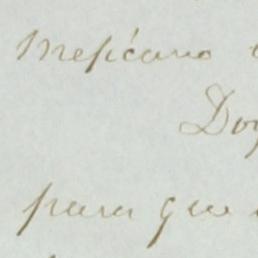 Mejicano
Doy
para que